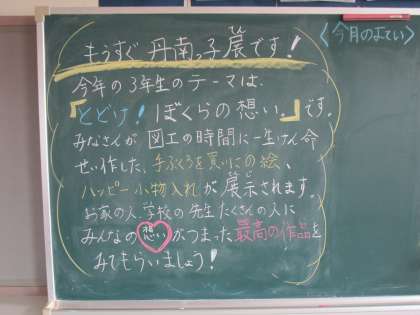 もうすぐ 丹南っ子展です!
今年の3年生のテーマは、
『とどけ!ぼくらの想い。』です。
みなさんが 図工の時間に一生けん命
せい作した、手ぶくろを買いにの絵、
ハッピー小物入れが展示されます。
お家の人、学校の先生たくさんの人に
みんなの想いがつまった最高の作品を
みてもらいましょう!
〈今月のよてい〉